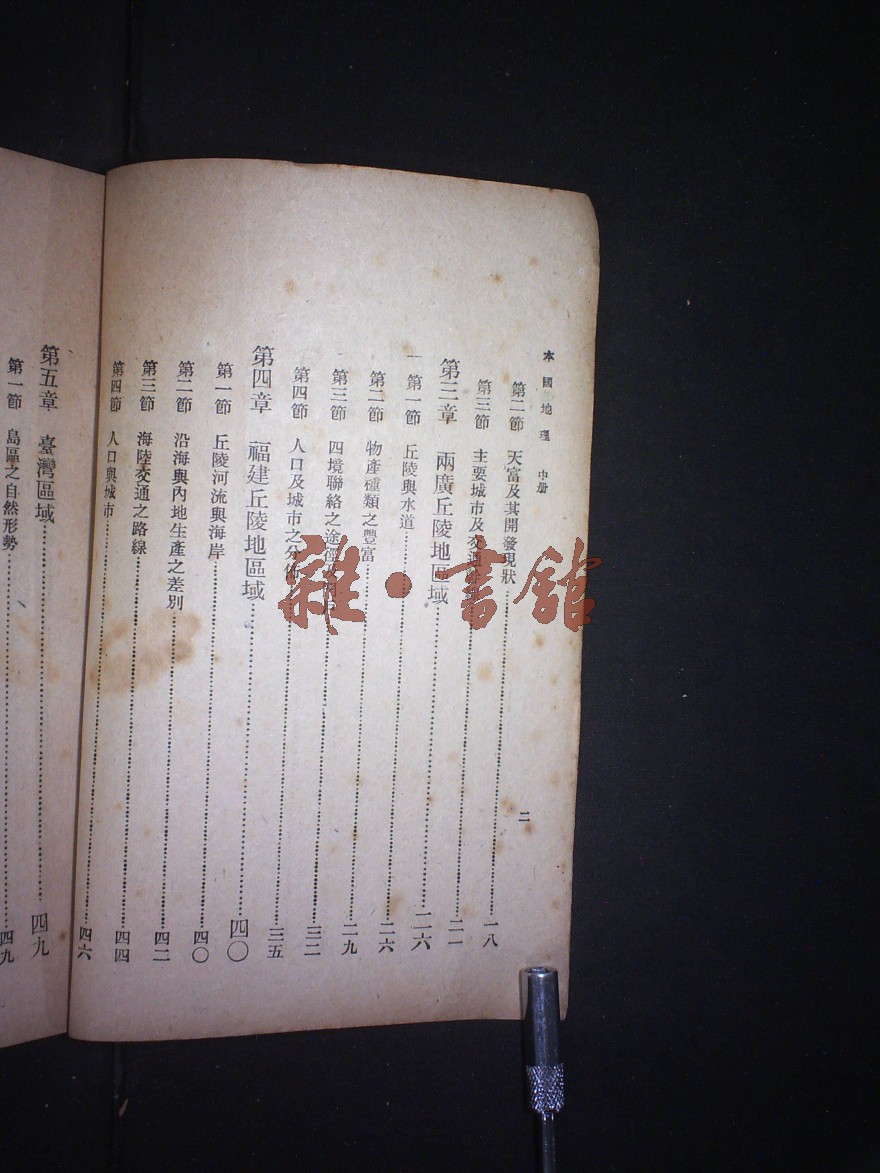 本國地理 中册
二
第二節 天富及其開發現狀 一八
第三節 主要城市及交通 二一
第三章 兩廣丘陵地區域 二六
第一節 丘陵與水道 二六
第二節 物產種類之豐富 二九
第三節 四境聯絡之途徑 三二
第四節 人口及城市之分佈 三五
第四章 福建丘陵地區域 四〇
第一節 丘陵河流與海岸 四〇
第二節 沿海與內地生產之差別 四二
第三節 海陸交通之路線 四四
第四節 人口與城市 四六
第五章 臺灣區域 四九
第一節 島區之自然形勢 四九
雜·書館